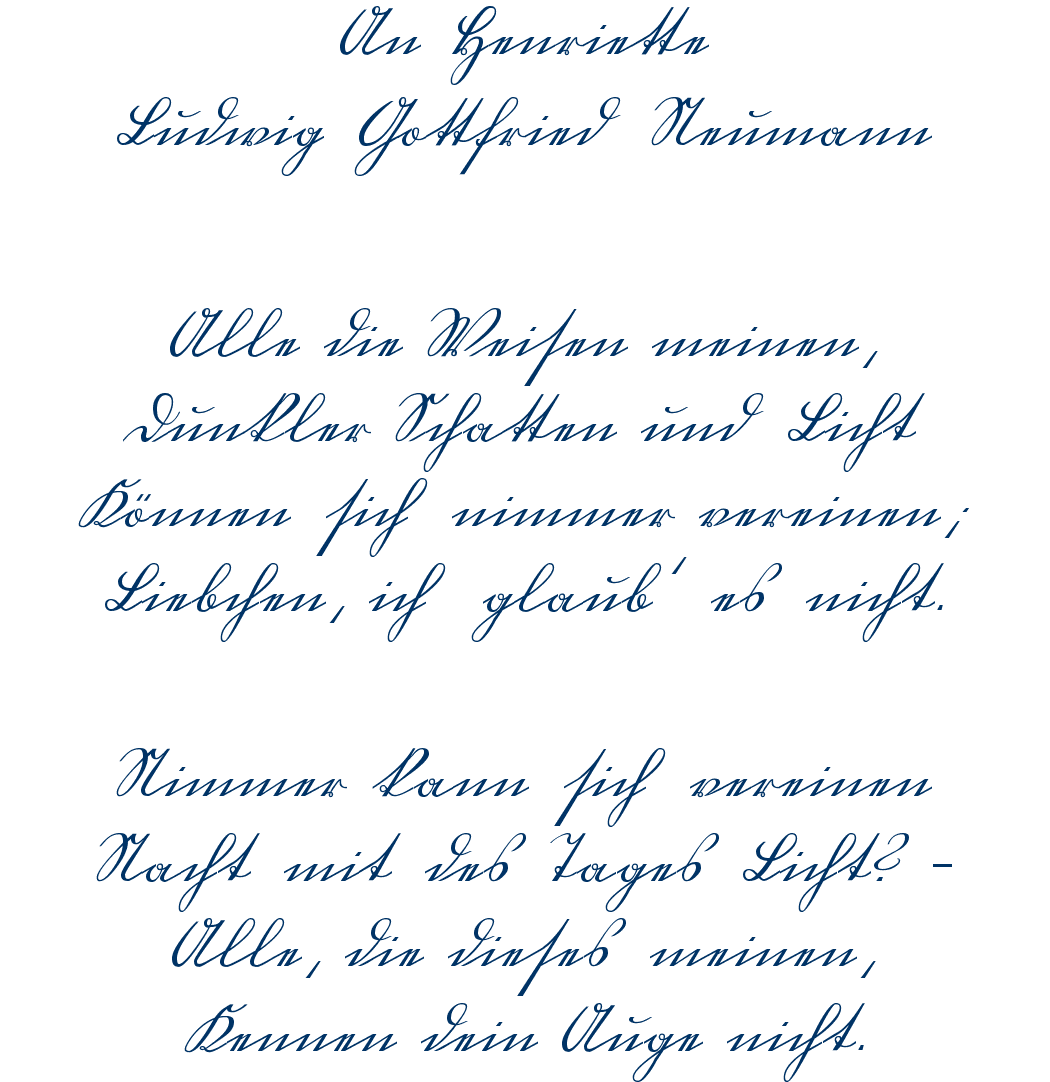 An Henriette
Ludwig Gottfried Neumann
Alle die Weisen meinen,
Dunkler Schatten und Licht
Können sich nimmer vereinen;
Liebchen, ich glaub' es nicht.
Nimmer kann sich vereinen
Nacht mit des Tages Licht? –
Alle, die dieses meinen,
Kennen dein Auge nicht.